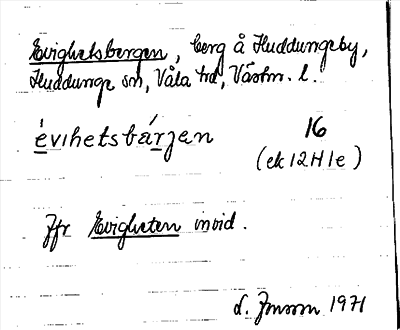 Evighetsbergen, berg å Huddungeby,
Huddunge sn, Våla hd, Västm. l.
èvıhetsbárjen 16
(ek 12H1e)
Jfr Evigheten invid.
d. Jonsson 1971